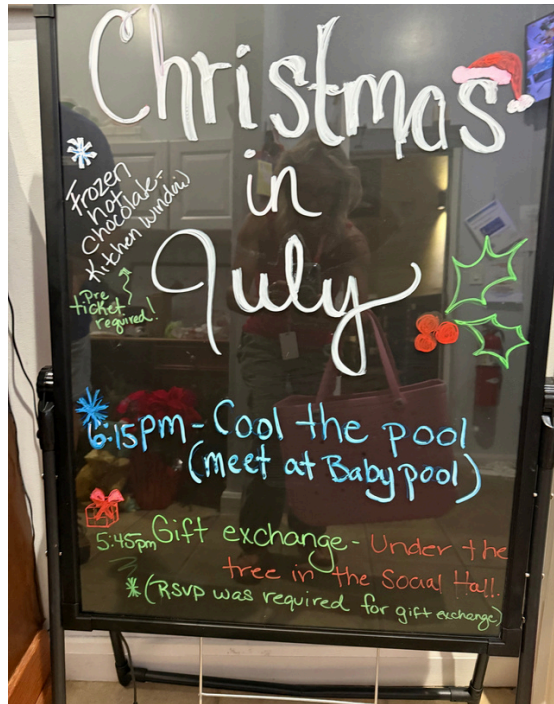 Christmas
in
July
Frozen
hot
chocolate-
Kitchen window
Pre
ticket
required!
6:15pm-Cool the pool
(meet at Baby pool)
5:45pm Gift exchange- Under the
tree in the Social Hall.
*(RSVP was required for gift exchange)